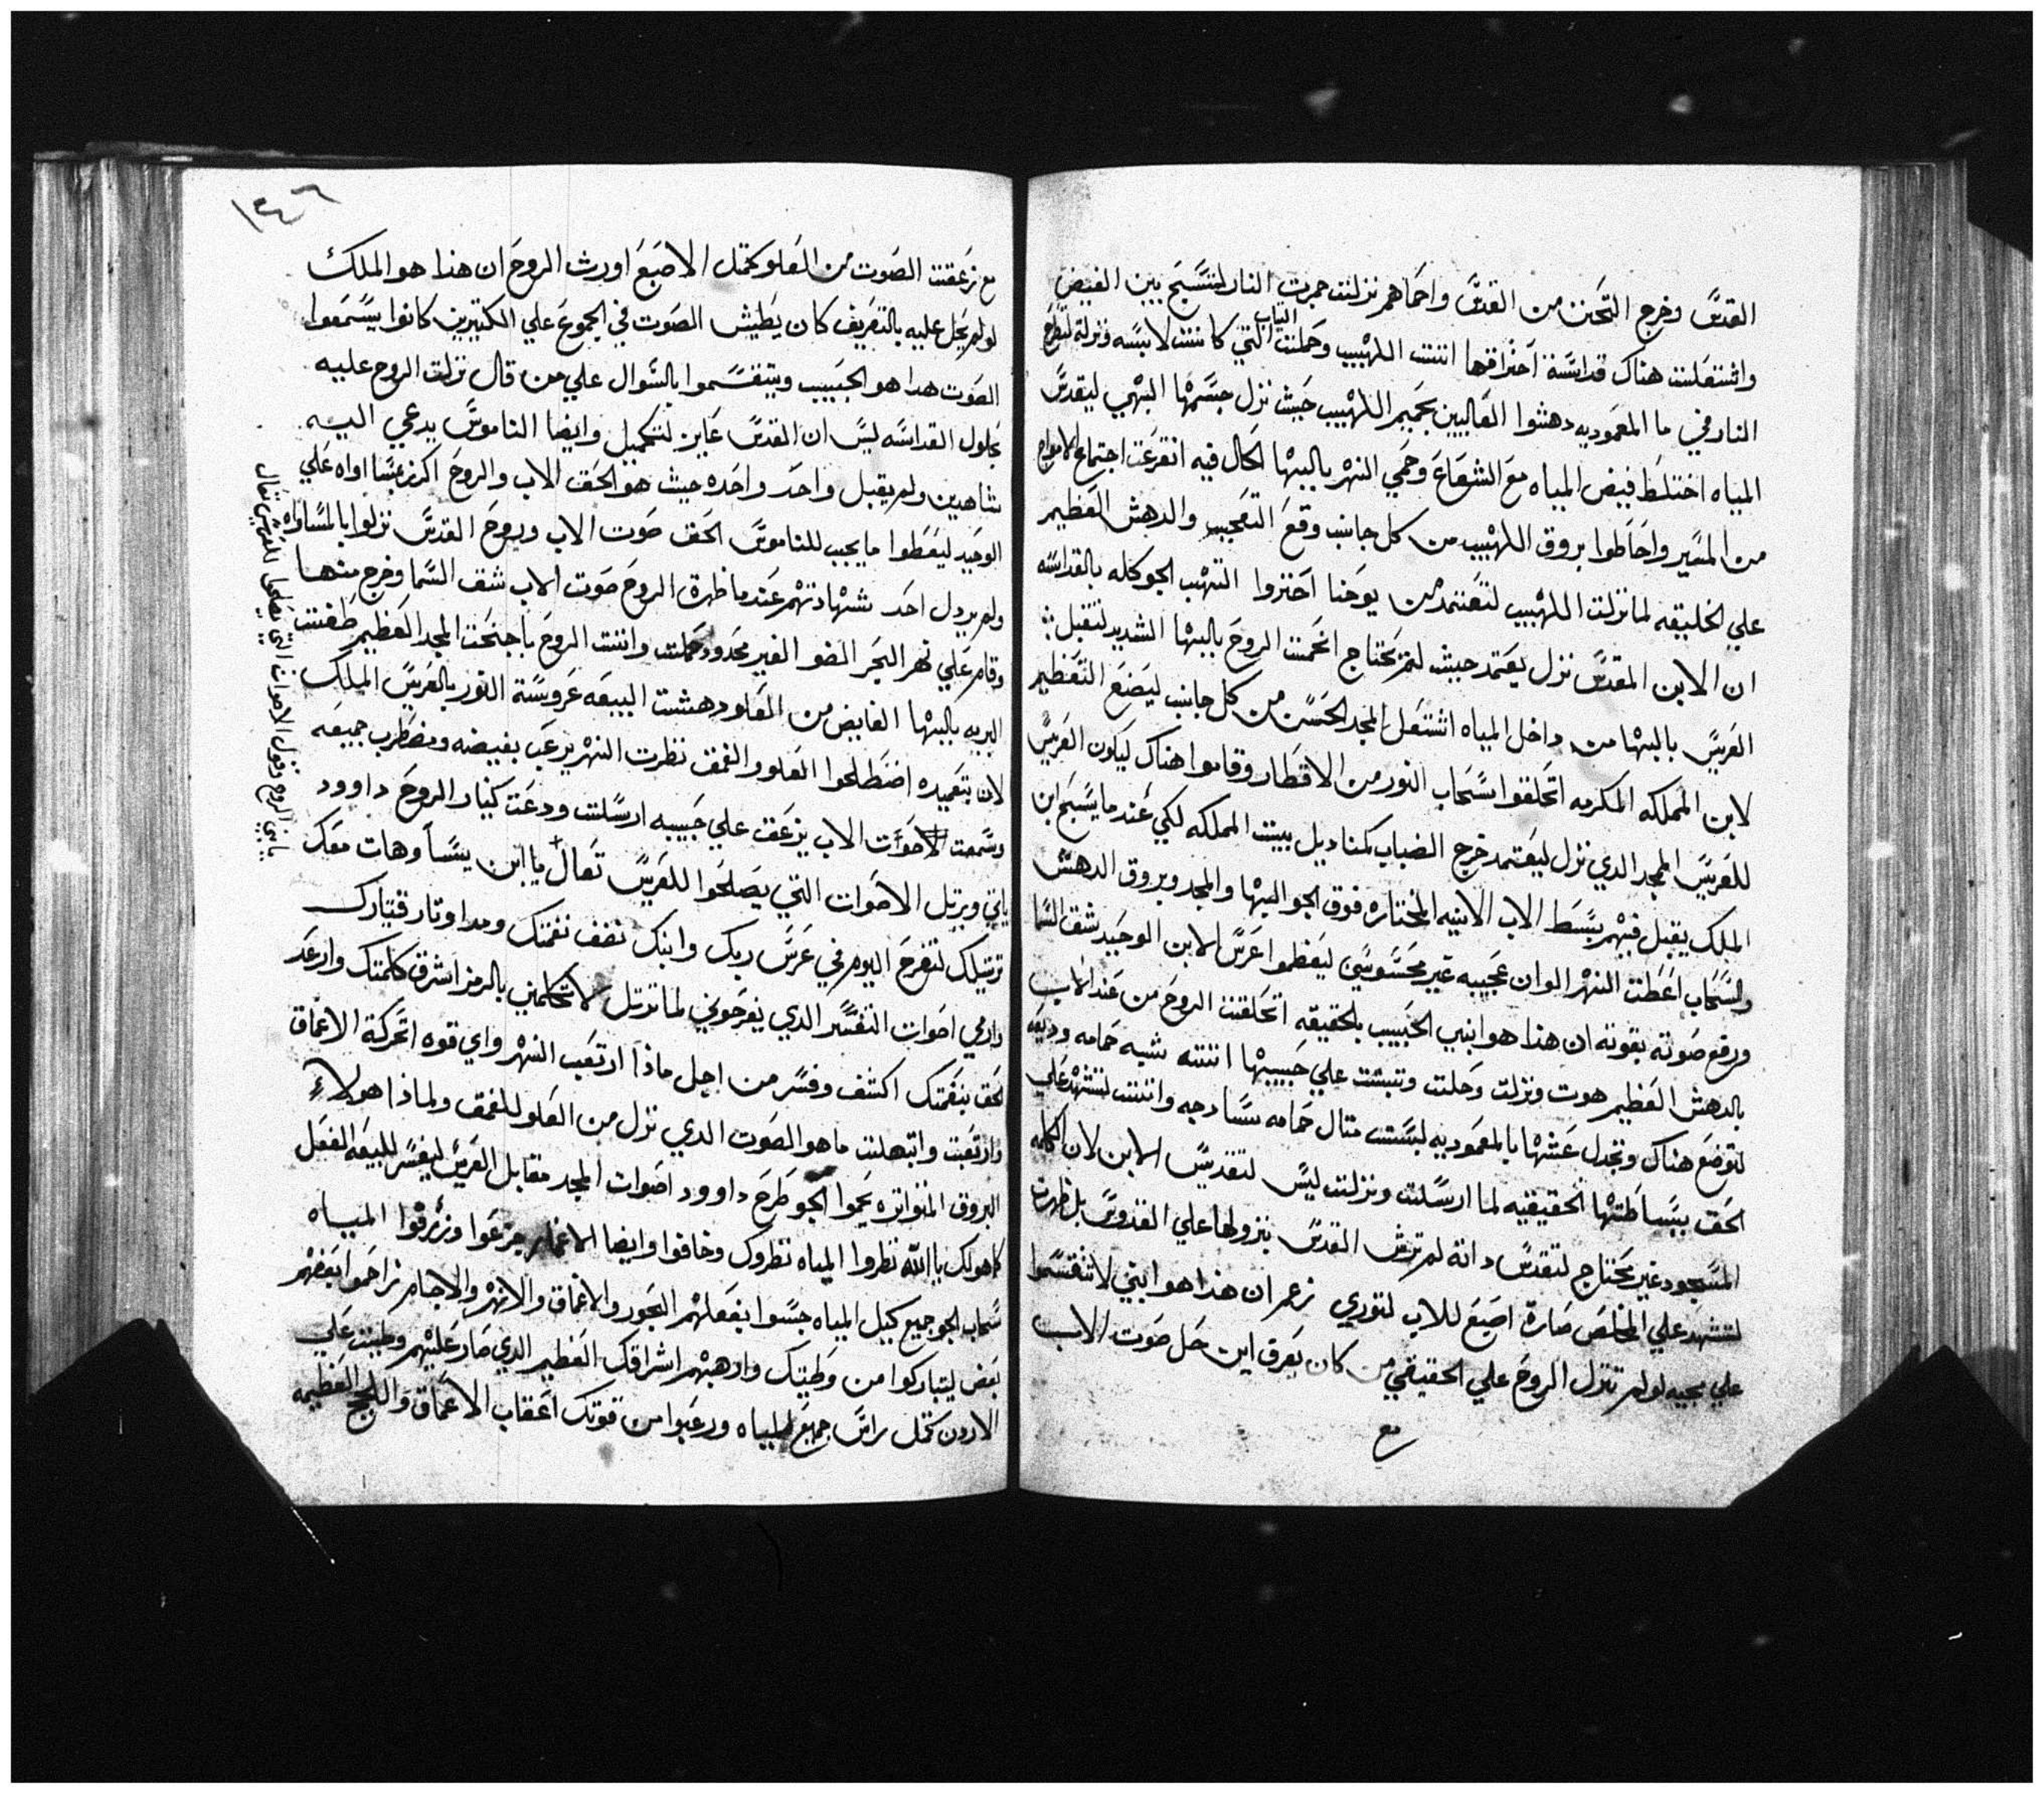 القدس وخرج التحنن من القدس واحماهم نزلت جمرت النار لتسبح بين الفيض
واشتعلت هناك قداسة احتراقها اتت اللهيب وحملت الثياب التي كانت لابسه ونزلة لتطرح
النار في ما المعموديه دهشوا العاليين بجمير اللهيب حيث نزل جسمها البهي ليقدس
المياه اختلط فيض المياه مع الشعاع وحمي النهر بالبها الحال فيه انقرعت اجتماع الامواه
من المسير واحاطوا بروق اللهيب من كل جانب وقع التعجب والدهش العظيم
علي الخليقه لما نزلت اللهيب لتعتمد من يوحنا احتروا التهب الجو كله بالقداسه
ان الابن المقدس نزل يعتمد حيث لم يحتاج انحمت الروح بالبها الشديد لتقبل
العريس بالبها من داخل المياه اشتعل المجد الحسن من كل جانب ليضع التعظيم
لابن المملكه المكرمه اتحلقوا سحاب النور من الاقطار وقاموا هناك ليكون العريس
للعريس الممجد الذي نزل ليعتمد خرج الضباب كمناديل بيت المملكه لكي عند ما يسبح ابن
الملك يقبل فيهم بسط الاب الابنيه المختاره فوق الجو البها والمجد وبروق الدهش
والسحاب اعطت النهر الوان عجيبه غير محسوسين ليعظموا عرس الابن الوحيد شق السما
ورفع صوته بقوته ان هذا هو ابني الحبيب بالحقيقه اتحلقت الروح من عند الاب
بالدهش العظيم هوت ونزلت وحلت وتبتت علي حبيبها اتته شبه حمامه وديعه
لتوضع هناك وتجدل عشها بالمعموديه لبست متال حمامه ساذجه واتت لتشهد علي
الحق ببساطتها الحقيقيه لما ارسلت ونزلت ليس لتقديس الابن لان الكلمه
المسجود غير محتاج لتقدس دانه لم ترش القدس بنزولها علي القدوس بل ظهرت
لتشهد علي المخلص صارة اصبع للاب لتوري زعم ان هذا هو ابني لا تنقسموا
علي مجيه لولم تنزل الروح علي الحقيقي من كان يعرف اين حل صوت الاب
مع
١٣٤٦
مع زعقت الصوت من العلو كتمل الاصبع اورث الروح ان هذا هو الملك
لولم يحل عليه بالتعريف كان يطيش الصوت في الجموع علي الكتيرين كانوا يسمعوا
الصوت هدا هو الحبيب ويتقسموا بالسوال علي من قال نزلت الروح عليه
بحلول القداسه ليس ان القدس عايز لتكميل وايضا الناموس يدعي اليه
شاهدين ولم يقبل واحد واحده حيث هو الحق الاب والروح اكرز عسا اواه علي
الوحيد ليعطوا ما يجب للناموس الحق صوت الاب وروح القدس نزلوا بالمساواه
ولم يرذل احد شهادتهم عند ما ظهرة الروح صوت الاب شق السما وخرج منها
وقام علي نهر البحر الضو الغير محدود حملت واتت الروح باجنحت المجد العظيم طفت
البريه بالبها الفايض من العلو دهشت البيعه عروسة النور بالعريس الملك
لان بتعميده اضطلحوا العلو والعمق نظرت النهر يرعب بفيضه ومضطرب جميعه
وسمعت لاصوات الاب يزعق علي حبيبه ارسلت ودعت كينار الروح داوود
ياتي ويرتل الاصوات التي يصلحوا للعريس تعال يا ابن يسا وهات معك
ترتيلك لتفرح اليوم في عرس ربك وابنك نقف نغمتك ومد اوتار قيتارك
وارمي اصوات التفسر الدي يفرحوني لما ترتل لا تكلمني بالرمز اشرق كلمتك وارعد
لحق بنغمتك اكشف وفسر من اجل ماذا ارتعب النهر واي قوه اتحركة الاعماق
وارتعبت وابتهلت ما هو الصوت الدي نزل من العلو للعمق ولماذا هولاء
البروق المتواتره يحموا الجو طرح داوود اصوات المجد مقابل العريس ليفسر للبيعه الفعل
كاهولك يا الله نظروا المياه نظروك وخافوا وايضا الاغمار جزعوا وزرقوا المياه
سحاب الجو جميع كيل المياه جسوا بفعلهم البحور والاعماق والانهر والاجام تزاحموا بعضهم
بعض ليتباركوا من وطيتك وارهبهم اشراقك العظيم الدي صار عليهم وطيت علي
الاردن كتل راس جميع المياه ورعبوا من قوتك اعقاب الاعماق واللجج العظيمه
ياتي الروح وتقول الاصوات التي يصلحوا للعريس تعال